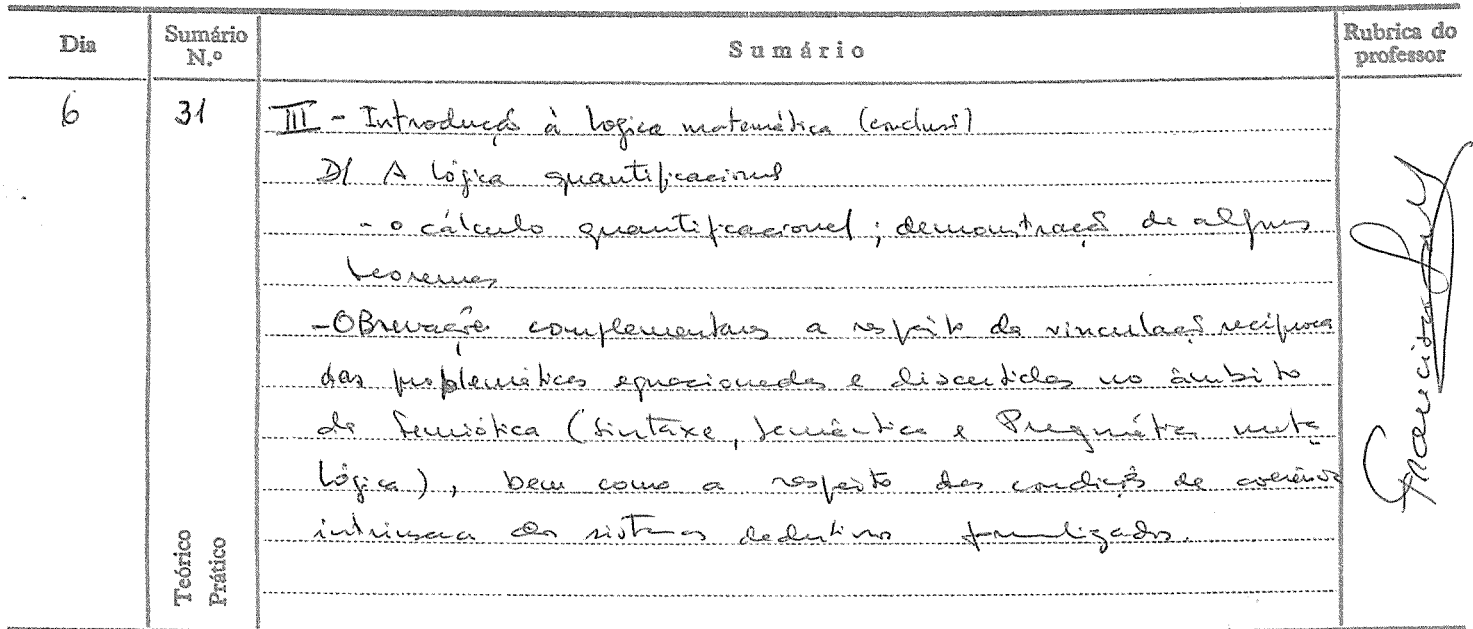 Dia
Sumário N.º
Sumário
Rubrica do professor
6
31
III - Introdução à lógica matemática (conclusão)
D/ A lógica quantificacional
- o cálculo quantificacional; demonstração de alguns
teoremas
- Observações complementares a respeito da vinculação recíproca
das problemáticas equacionadas e discutidas no âmbito
da Semiótica (Sintaxe, Semântica e Pragmática meta
lógica), bem como a respeito das condições de coerência
intrínseca dos sistemas dedutivos formalizados.
Teórico
Prático